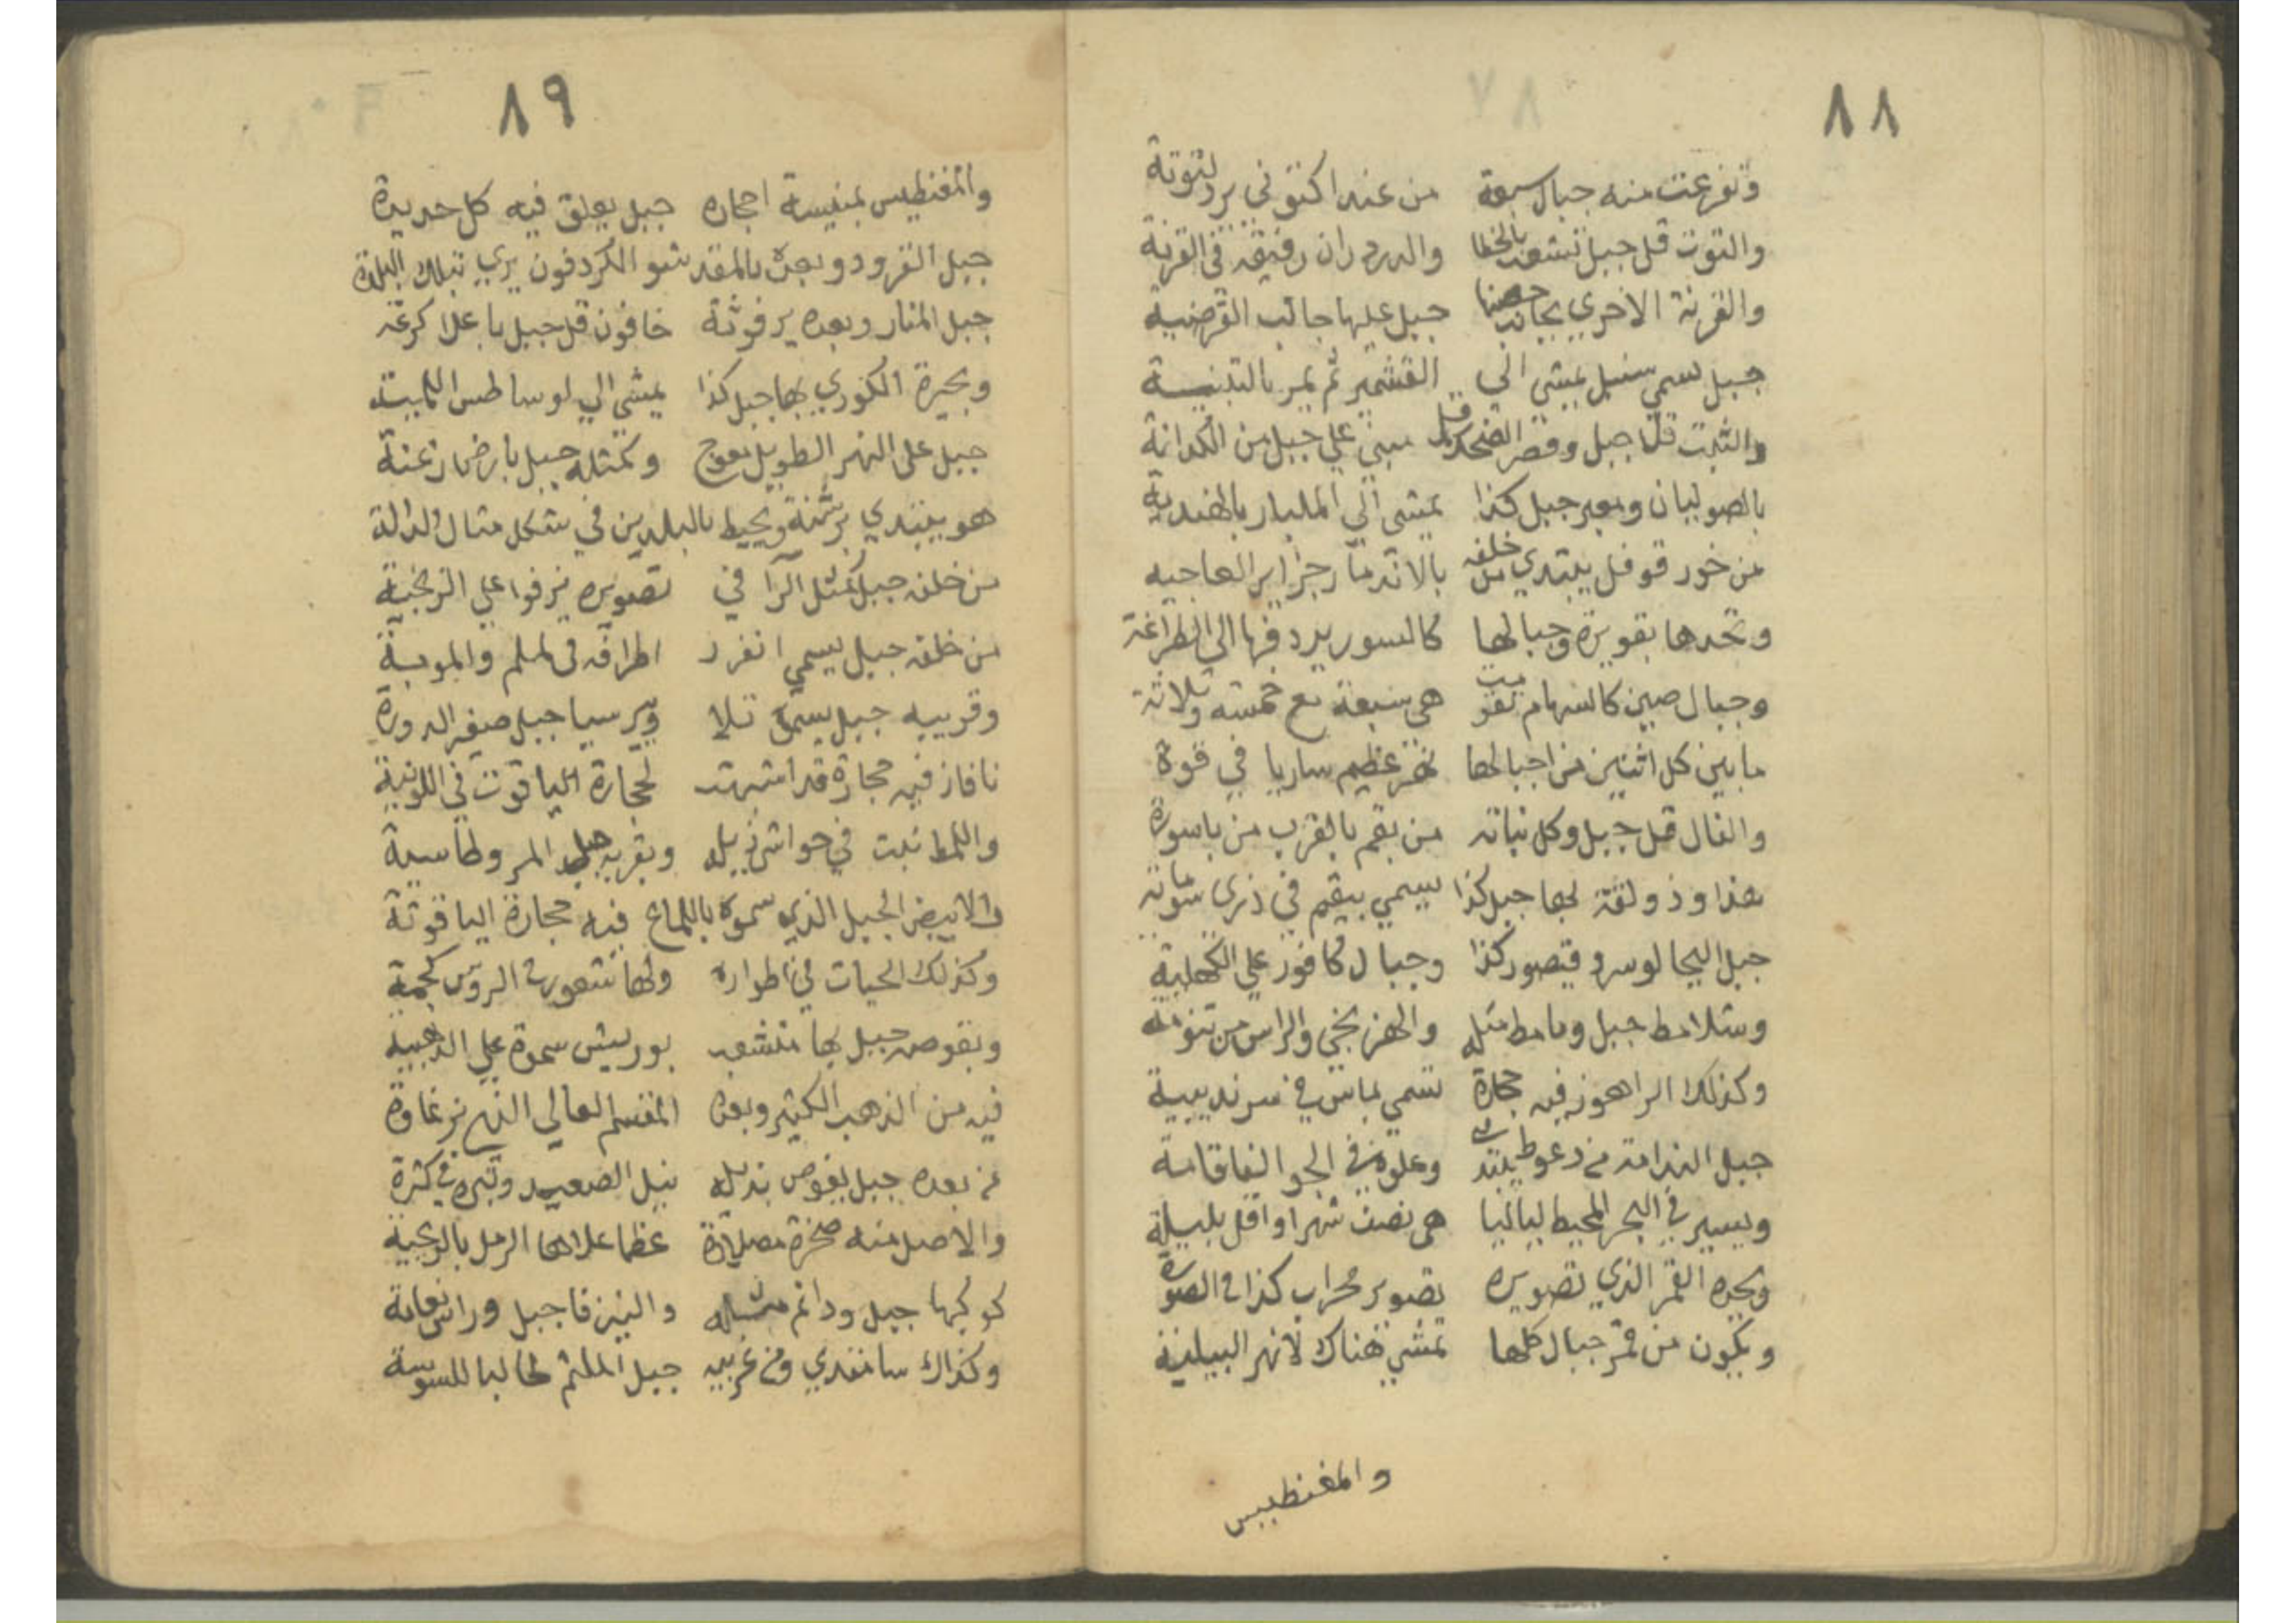 ٨٨
وتفرعت منه جبال سبعة من عند اكتوني بردلتوتة
والتوت قل جبل تشعب بالخطا والدردران رفيقه في القرنة
والقرنة الاخري بجانب جبل عليها جالب القرضية
جبل يسمي سنبل يمشي الي القشمير ثم يمر بالتبنية
والثبت قل جبل وقصر الضحك قل مبني علي جبل من الكدانة
بالصوليان وبعد جبل كذا يمشي الي المليبار بالهندية
من خور قوفل يبتدي من خلفه بالاندمار جزاير العاجيه
وتحدها بقويرة وجبالها كالسور يرد فرها الي الطراغة
وجبال صين كالسهام تقوّيت هي سبعة مع خمسة وثلاثة
ما بين كل اثنين من اجبالها نهر عظيم ساريا في قوة
والفال قل جبل وكل نباته من بقم بالقرب من باسورة
هذا وذو لقة لها جبل كذا يسمي ببقم في ذري سوماته
جبل اليجالوس وقيصور كذا وجبال كافور علي الكهلية
وشلامط جبل ومامط مثله والهزبخي والراس من تنومة
وكذلك الراهون فيه حجارة تسمي بماس في سرنديبية
جبل الندامة من دعوط يبتدي وعلوه في الجو الفا قامة
ويسير في البحر المحيط لياليا هي نصف شهر او اقل بليلة
وبحره القمر الذي تصويره تصوير محراب كذا في الصورة
ويكون من قمر جبال كلها تمشي هناك لانهر البيلية
والمغنطيس
٨٩
والمغنطيس بمغنيسة احجاره جبل يعلق فيه كل حديدة
جبل القرود وبعده بالمقدشو الكردفون يري بتلك البلدة
جبل المنار وبعده يرفوثة خافون قل جبل باعلا كرغة
وبحيرة الكوري بها جبل كذا يمشي الي لوساطس الكميت
جبل على النهر الطويل معوج وكمثله جبل بارض زغنة
هو يبتدي برثمنة ويحيط بالبلدين في شكل مثال الدالة
من خلفه جبل كمثل الرا في تصويره يزفوا علي الزنجية
من خلفه جبل يسمي انفرد اطرافه في لملم والموبية
وقريبه جبل يسمي تلا وبرسيا جبل صغير الدورة
نافاز فيه حجارة قد اشبهت لحجارة الياقوت في اللونية
واللمط نبت في حواشي ذيله وبقربه جبل المر وطاسية
والابيض الجبل الذي سموه باللماع فيه حجارة الياقوتة
وكذلك الحيات في اطواره ولها شعورة الروس كجمة
وبقوص جبل بها متشعب بوريش سموه علي الذهبية
فيه من الذهب الكثير وبعده المقسم العالي النهر نرغاوة
من بعده جبل يغوص بذيله نيل الصعيد وتبره في كثرة
والاصل منه صخرة مصلادة عظما علاها الرمل بالريحية
كوكبها جبل ودانم مثله والنيزفا جبل وراس نعامة
وكذاك سامغدي ومن غربيه جبل الملثم طالبا للسوسة